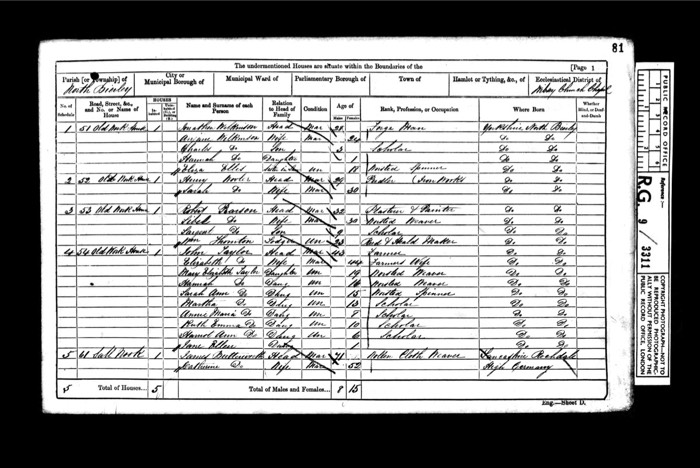 81
The undermentioned Houses are situate within the Boundaries of the
[Page 1
Parish [or Township] of
City or Municipal Borough of
Municipal Ward of
Parliamentary Borough of
Town of
Hamlet or Tything, &c., of
Ecclesiastical District of
North Bierley
No. of Schedule
Road, Street, &c., and No. or Name of House
HOUSES
Name and Surname of each Person
Relation to Head of Family
Condition
Age of
Males
Females
Rank, Profession, or Occupation
Where Born
Whether Blind, or Deaf-and-Dumb
1 51 Old Work House 1 Jonathan Wilkinson Head Mar 28 Forge Man Yorkshire North Bierley
Do Wife Mar 24 Do Do
Charles Do Son 3 Scholar Do Do
Hannah Do Daughter 1 Do Do
Eliza Un 18 Worsted Spinner Do Do
2 52 Old Work House 1 Henry Head Mar 29 Do Do
Sarah Do Wife Mar 30 Do Do
3 53 Old Work House 1 Pearson Head Mar 32 Plasterer & Painter Do Do
Do Wife Mar 30 Worsted Weaver Do Do
Sargent Do Son 9 Scholar Do Do
Wm Thornton Lodger Un 23 Reed & Heald Maker Do Do
4 54 Old Work House 1 John Taylor Head Mar 43 Farmer Do Do
Elizabeth Do Wife Mar 44 Farmers Wife Do Do
Mary Elizabeth Taylor Daughter Un 19 Worsted Weaver Do Do
Hannah Do Un 16 Worsted Weaver Do Do
Sarah Ann Do Un 15 Worsted Spinner Do Do
Martha Do Un 13 Scholar Do Do
Annie Maria Do Un 8 Scholar Do Do
Ruth Emma Do Un 10 Scholar Do Do
Harriot Ann Do Un 6 Scholar Do Do
Jane Ellen
5 61 Salt Nook 1 James Butterworth Head Mar 71 Cloth Weaver Lancashire Rochdale
Catherine Do Wife Mar 52 High Germany
5 Total of Houses... 5 Total of Males and Females... 8 15
Eng.—Sheet D.
PUBLIC RECORD OFFICE
Reference :-
R.G. 9 / 3311
COPYRIGHT PHOTOGRAPH—NOT TO
BE REPRODUCED PHOTOGRAPHIC-
ALLY WITHOUT PERMISSION OF THE
PUBLIC RECORD OFFICE, LONDON